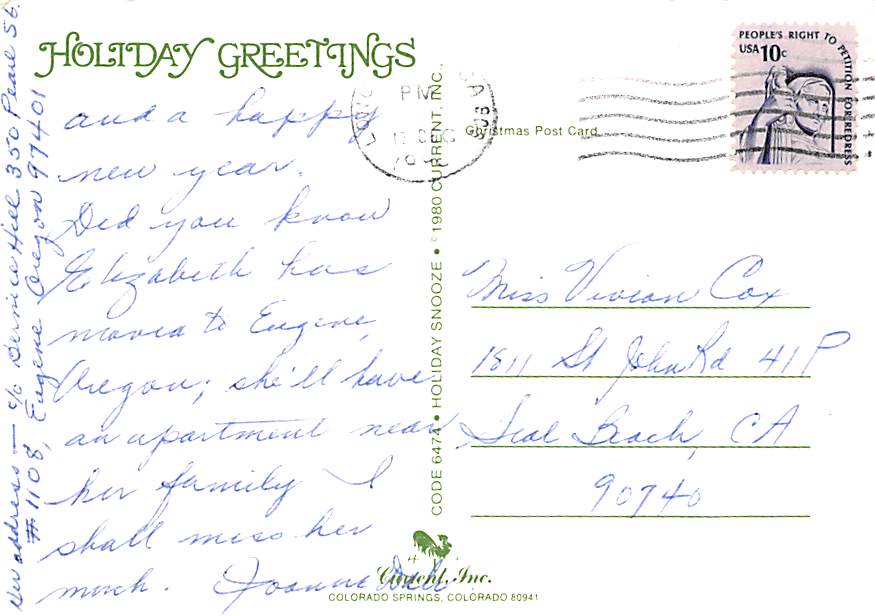 HOLIDAY GREETINGS
and a happy
new year.
Did you know
Elizabeth has
moved to Eugene,
Oregon; she'll have
an apartment near
her family I
shall miss her
much. Joanna
New address — c/o Bernice Hill 350 Pearl St.
#1108, Eugene Oregon 97401
CODE 6474 • HOLIDAY SNOOZE • ©1980 CURRENT, INC.
PM
Christmas Post Card
PEOPLE'S RIGHT TO PETITION FOR REDRESS
USA 10c
Miss Vivian Cox
1811 St John Rd 41P
Seal Beach, CA
90740
Current, Inc.
COLORADO SPRINGS, COLORADO 80941